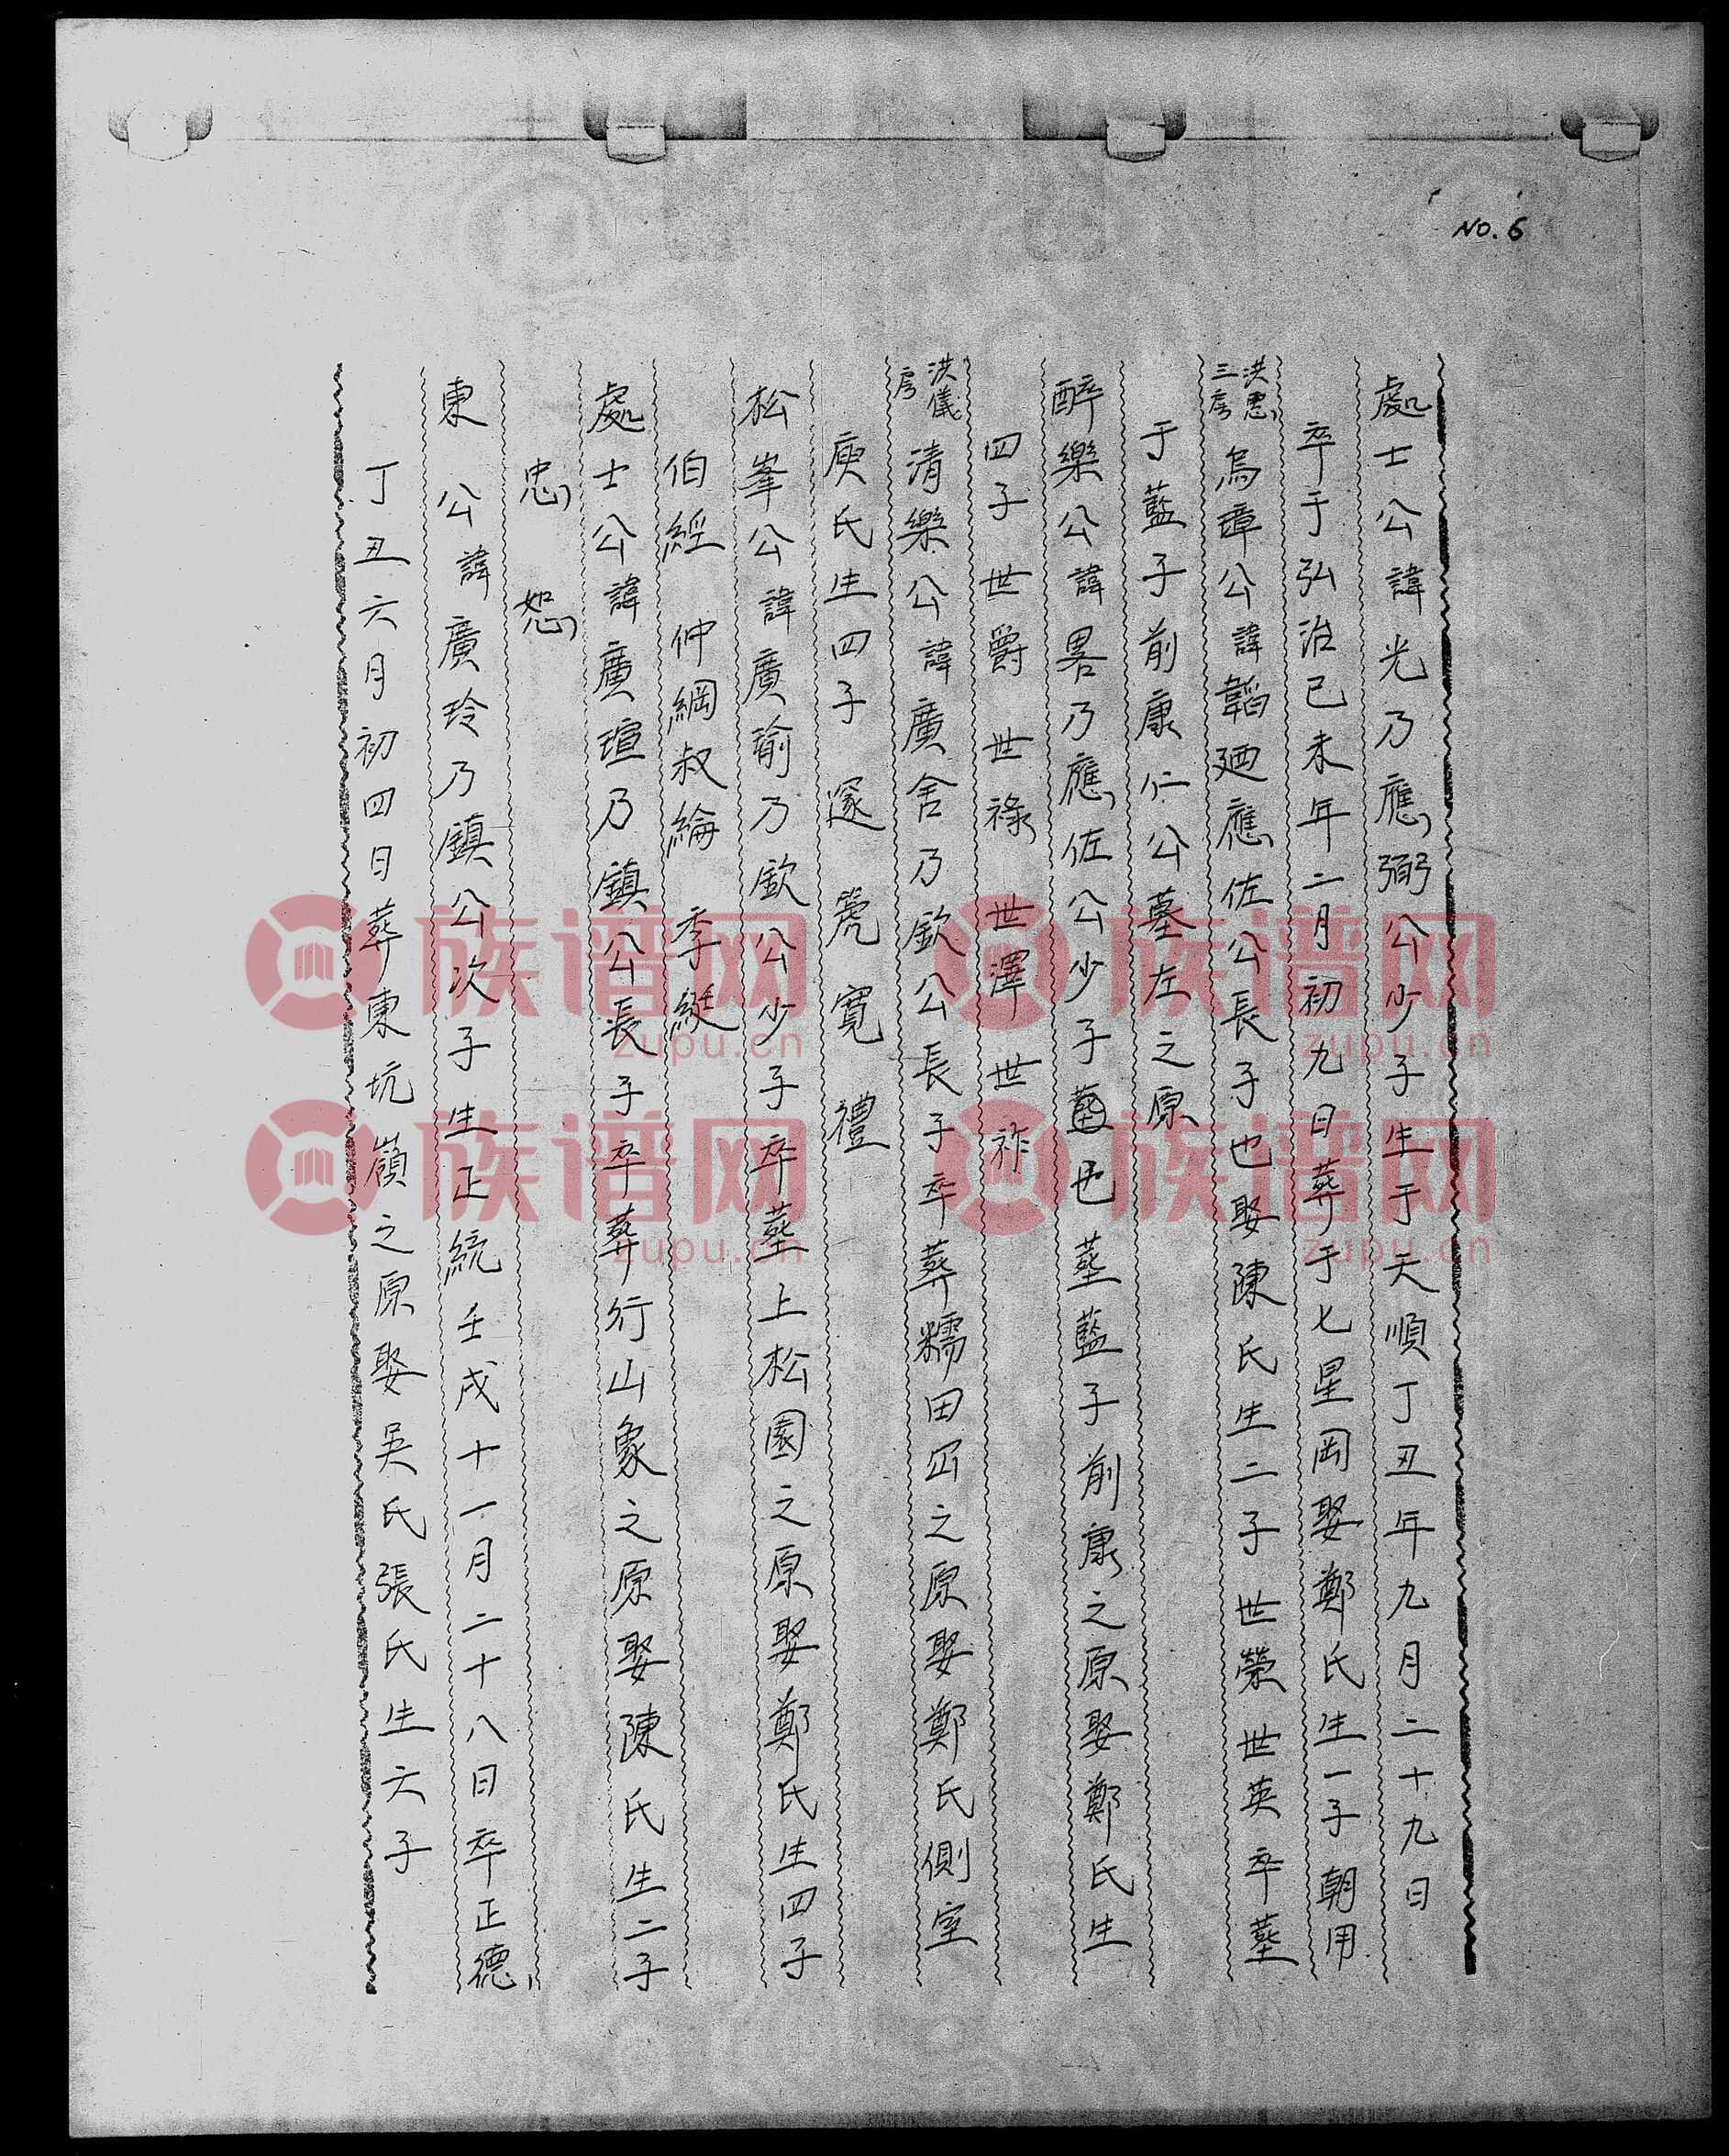 NO. 6
處士公諱光乃應弼公少子生于天順丁丑年九月二十九日
卒于弘治己未年二月初九日葬于七星岡娶鄭氏生一子朝用
洪思
三房
烏章公諱韜廼應佐公長子也娶陳氏生二子世榮世英卒塟
于藍子前康仁公墓左之原
醉樂公諱畧乃應佐公少子也塟藍子前康之原娶鄭氏生
四子世爵世祿世澤世祚
洪儀
房
清樂公諱廣舍乃欽公長子卒葬糯田之原娶鄭氏側室
庾氏生四子邃箎寬禮
松峯公諱廣瑜乃欽公少子卒塟上松園之原娶鄭氏生四子
伯經仲綱叔綸季綖
處士公諱廣瑄乃鎮公長子卒葬行山象之原娶陳氏生二子
忠恕
東公諱廣玲乃鎮公次子生正統壬戌十一月二十八日卒正德
丁丑六月初四日葬東坑嶺之原娶吳氏張氏生六子
族谱网 族谱网
zupu.cn zupu.cn
族谱网 族谱网
zupu.cn zupu.cn